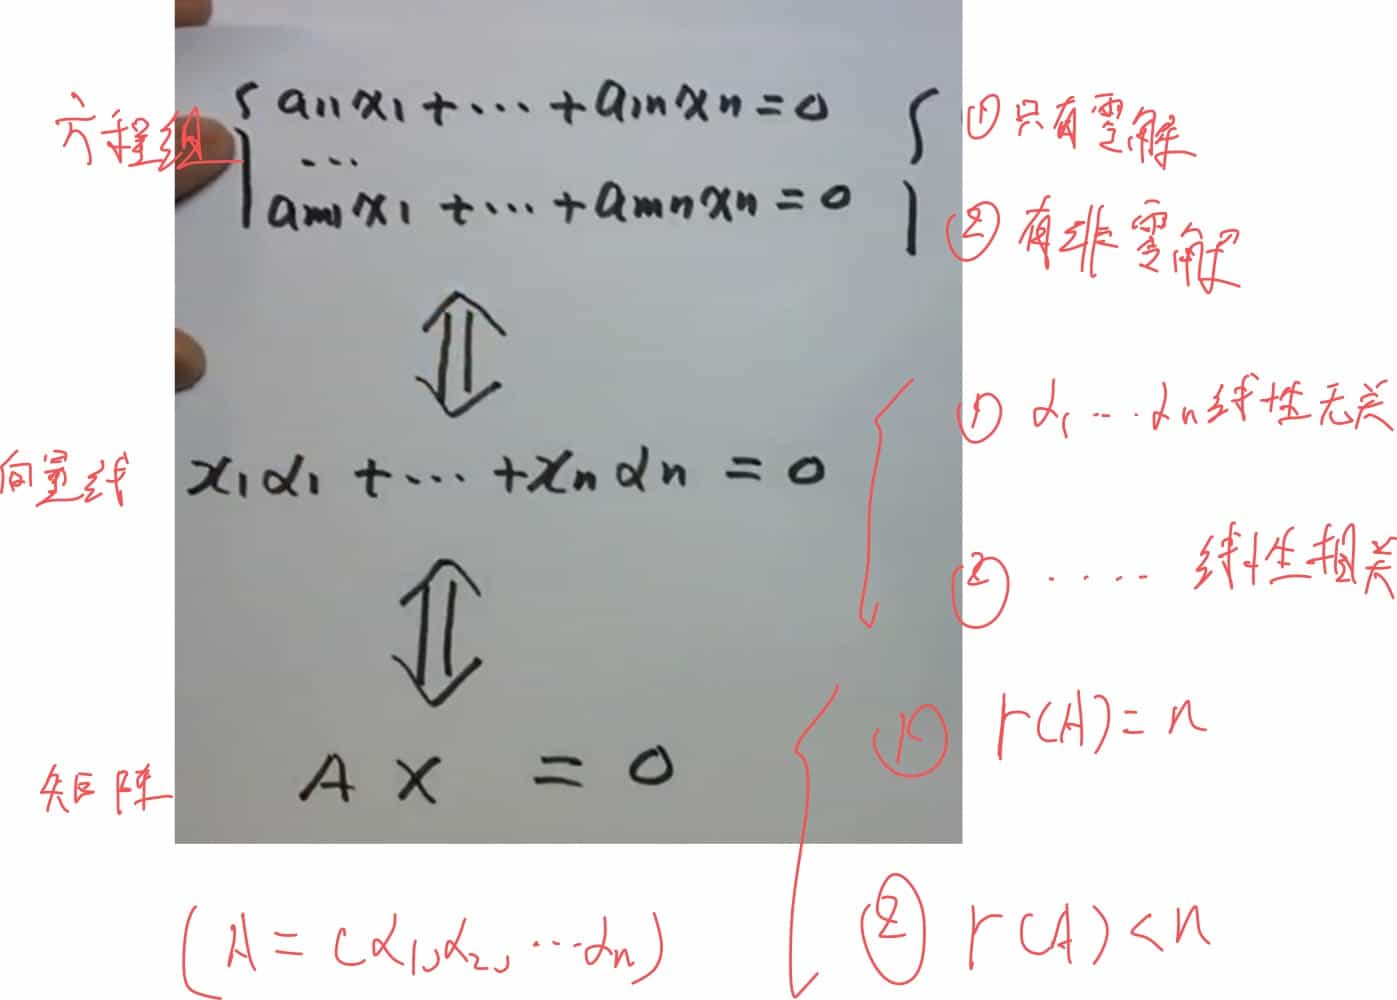 方程组
a11x1+···+a1nxn=0
···
am1x1+···+amnxn=0
①只有零解
②有非零解
向量线
x1α1+···+xnαn=0
①α1···αn线性无关
②·····线性相关
矩阵
AX=0
①r(A)=n
②r(A)<n
(A=(α1,α2,···αn)